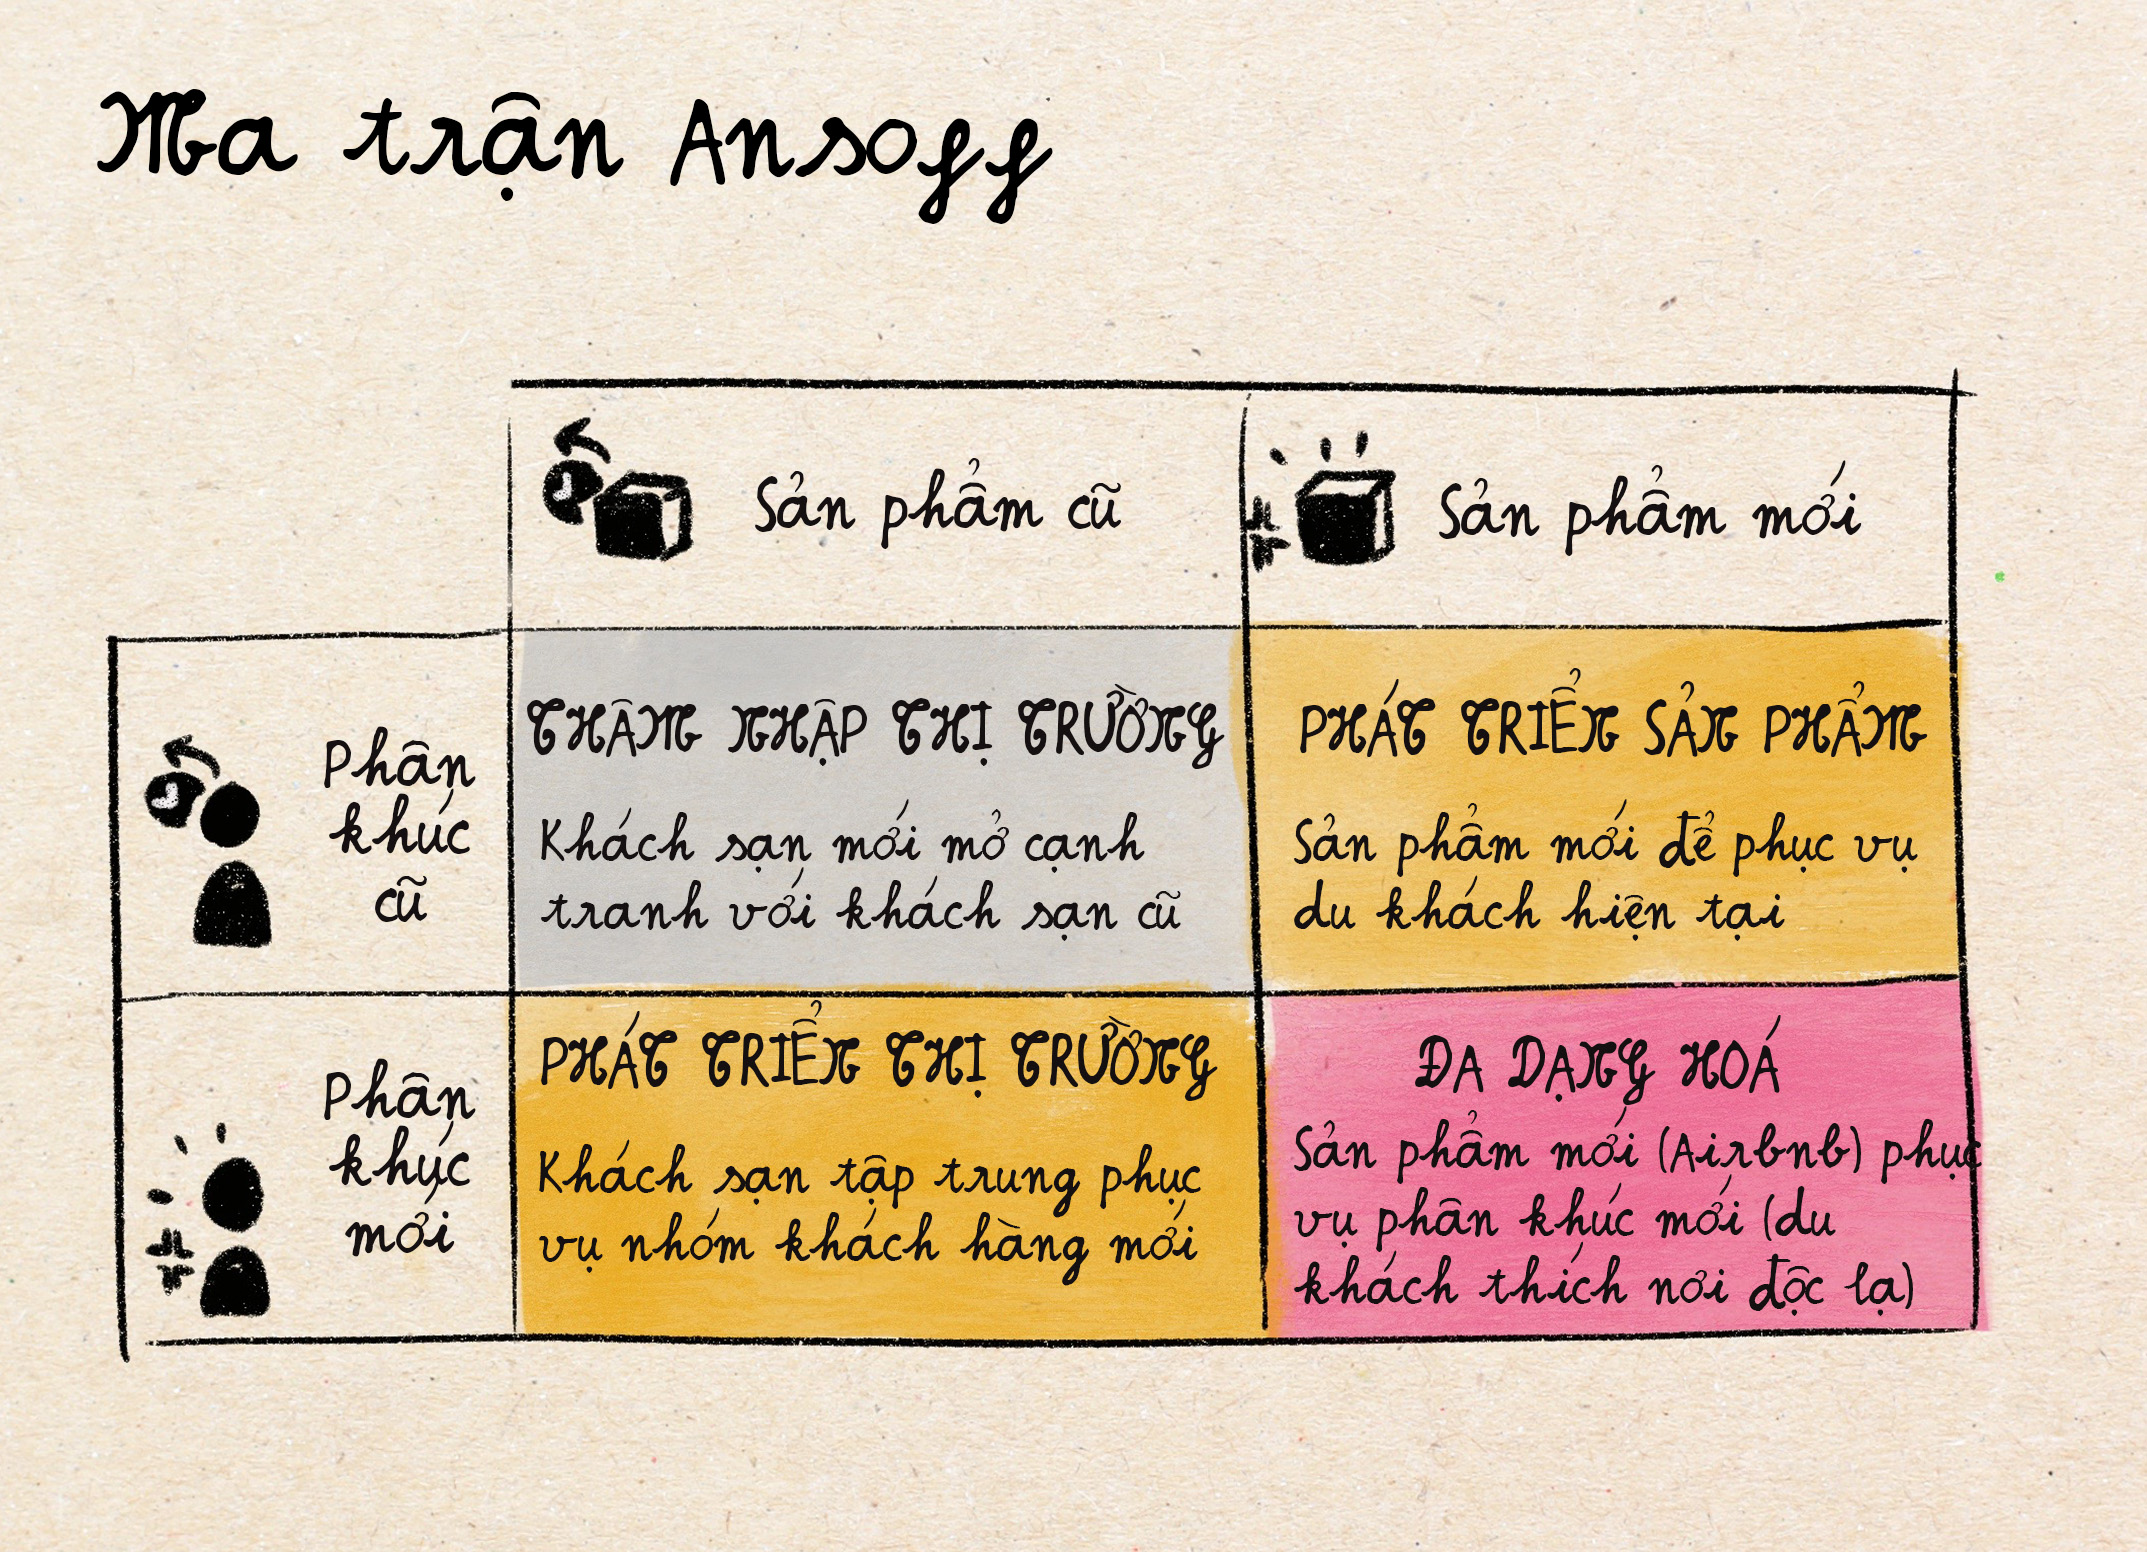 Ma trận Ansoff
Sản phẩm cũ
Sản phẩm mới
Phân
khúc
cũ
THÂM NHẬP THỊ TRƯỜNG
Khách sạn mới mở cạnh
tranh với khách sạn cũ
PHÁT TRIỂN SẢN PHẨM
Sản phẩm mới để phục vụ
du khách hiện tại
Phân
khúc
mới
PHÁT TRIỂN THỊ TRƯỜNG
Khách sạn tập trung phục
vụ nhóm khách hàng mới
ĐA DẠNG HOÁ
Sản phẩm mới (Airbnb) phục
vụ phân khúc mới (du
khách thích nơi độc lạ)